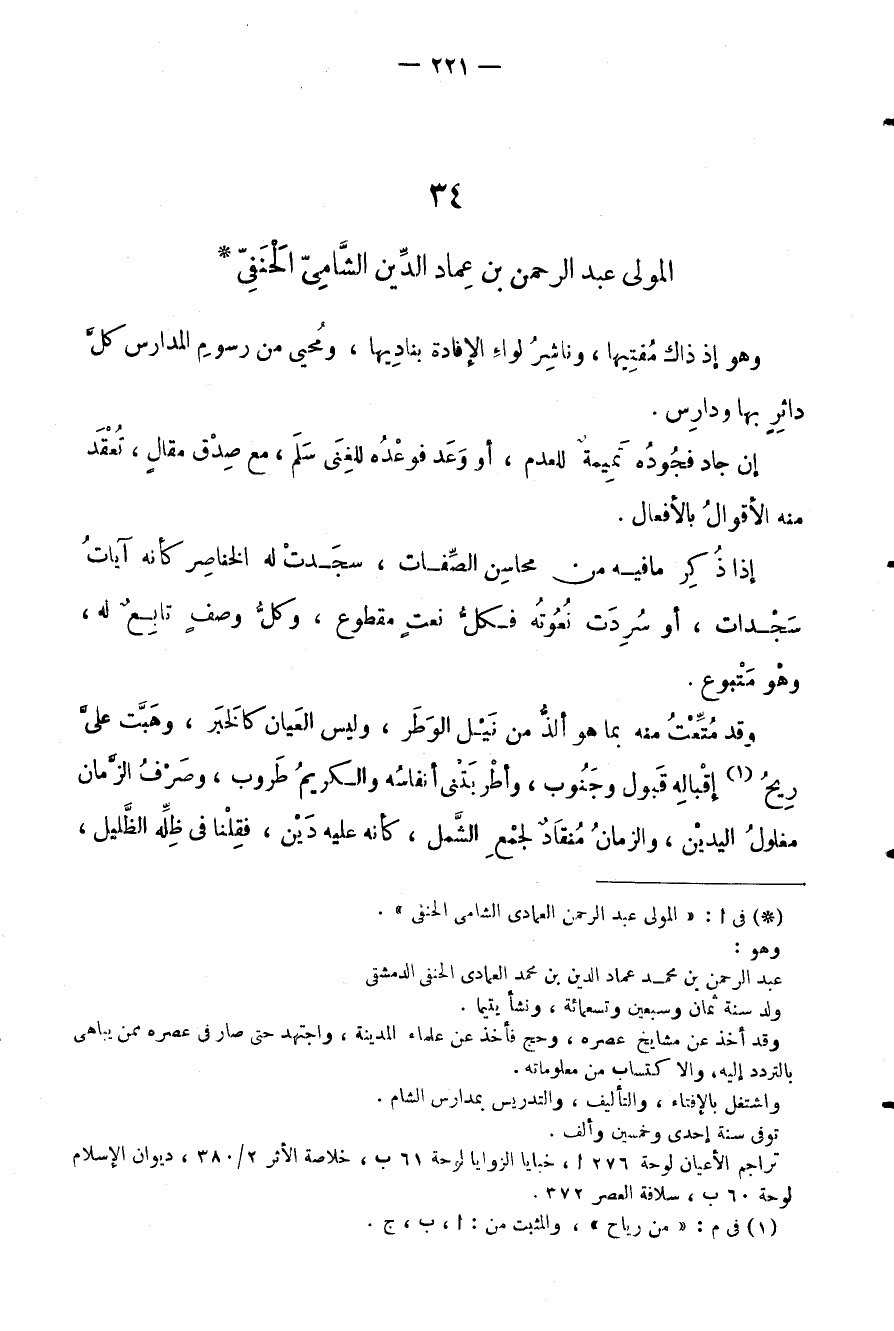 — ٢٢١ —
٣٤
المولى عبد الرحمن بن عِماد الدِّين الشَّامِيّ الْحَنَفِيّ *
وهو إذ ذاك مُفتِيها ، وناشِرُ لواءِ الإفادة بنادِيها ، ومُحيى من رسومِ المدارس كلَّ
دائرٍ بها ودارِس .
إن جاد فجُودُه تَمِيمةٌ للعدم ، أو وَعَد فوعْدُه للغِنَى سَلَم ، مع صِدْق مقالٍ ، تُعْقَد
منه الأقوالُ بالأفعال .
إذا ذُكِر مافيـه من محاسِن الصِّفـات ، سجَـدتْ له الخناصِر كأنه آياتُ
سَجْـدات ، أو سُرِدَت نُعُوتُه فـكلُّ نعتٍ مقطوع ، وكلُّ وصفٍ تابِـعٌ له ،
وهْو مَتْبوع .
وقد مُتِّعْتُ منه بما هو ألذُّ من نَيْـل الوَطَر ، وليس العَيان كالْخَبَر ، وهَبَّت علىَّ
رِيحُ (١) إقْبالِه قَبول وجَنُوب ، وأطْربَتْنى أنفاسُه والـكريمُ طَروب ، وصَرْفُ الزَّمان
مغلولُ اليديْن ، والزمانُ مُنقادٌ لجمْعِ الشَّمل ، كأنه عليه دَيْن ، فقِلْنا فى ظِلِّه الظَّليل ،
(*) فى ا : « المولى عبد الرحمن العمادى الشامى الحنفى » .
وهو :
عبد الرحمن بن محمـد عماد الدين بن محمد العمادى الحنفى الدمشقى
ولد سنة ثمان وسبعين وتسعمائة ، ونشأ يتيما .
وقد أخذ عن مشايخ عصره ، وحج فأخذ عن علماء المدينة ، واجتهد حتى صار فى عصره ممن يباهى
بالتردد إليه، والاكتساب من معلوماته .
واشتغل بالإفتاء ، والتأليف ، والتدريس بمدارس الشام .
توفى سنة إحدى وخمسين وألف .
تراجم الأعيان لوحة ٢٧٦ ا ، خبايا الزوايا لوحة ٦١ ب ، خلاصة الأثر ٢/ ٣٨٠ ، ديوان الإسلام
لوحة ٦٠ ب ، سلافة العصر ٣٧٢ .
(١) فى م : « من رياح » ، والمثبت من : ا ، ب ، ج .